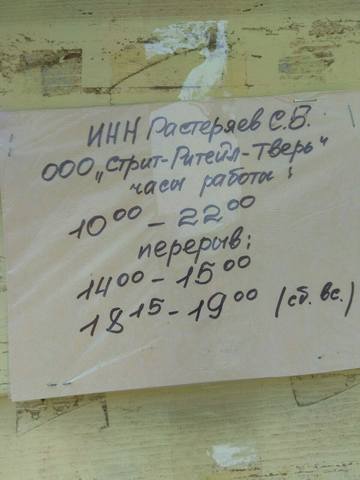 ИНН Растеряев С.Б.
ООО „Стрит-Ритейл-Тверь"
часы работы:
10⁰⁰ - 22⁰⁰
перерыв:
14⁰⁰ - 15⁰⁰
18¹⁵ - 19⁰⁰ (сб. вс.)